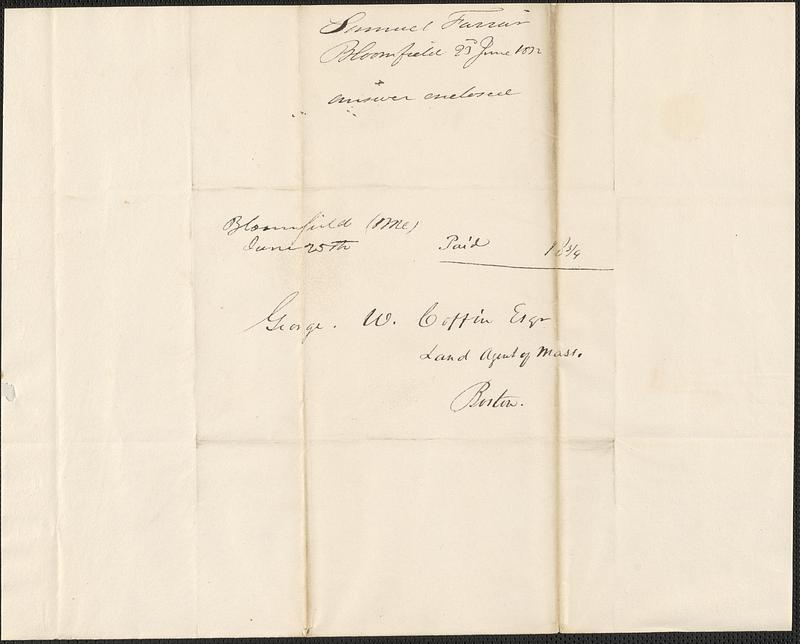 Samuel Farrar
Bloomfield 23 June
answer enclosed
Bloomfield (Me)
June 25th
Paid 18 3/4
George. W. Coffin Esqr
Land Agent of Mass.
Boston.